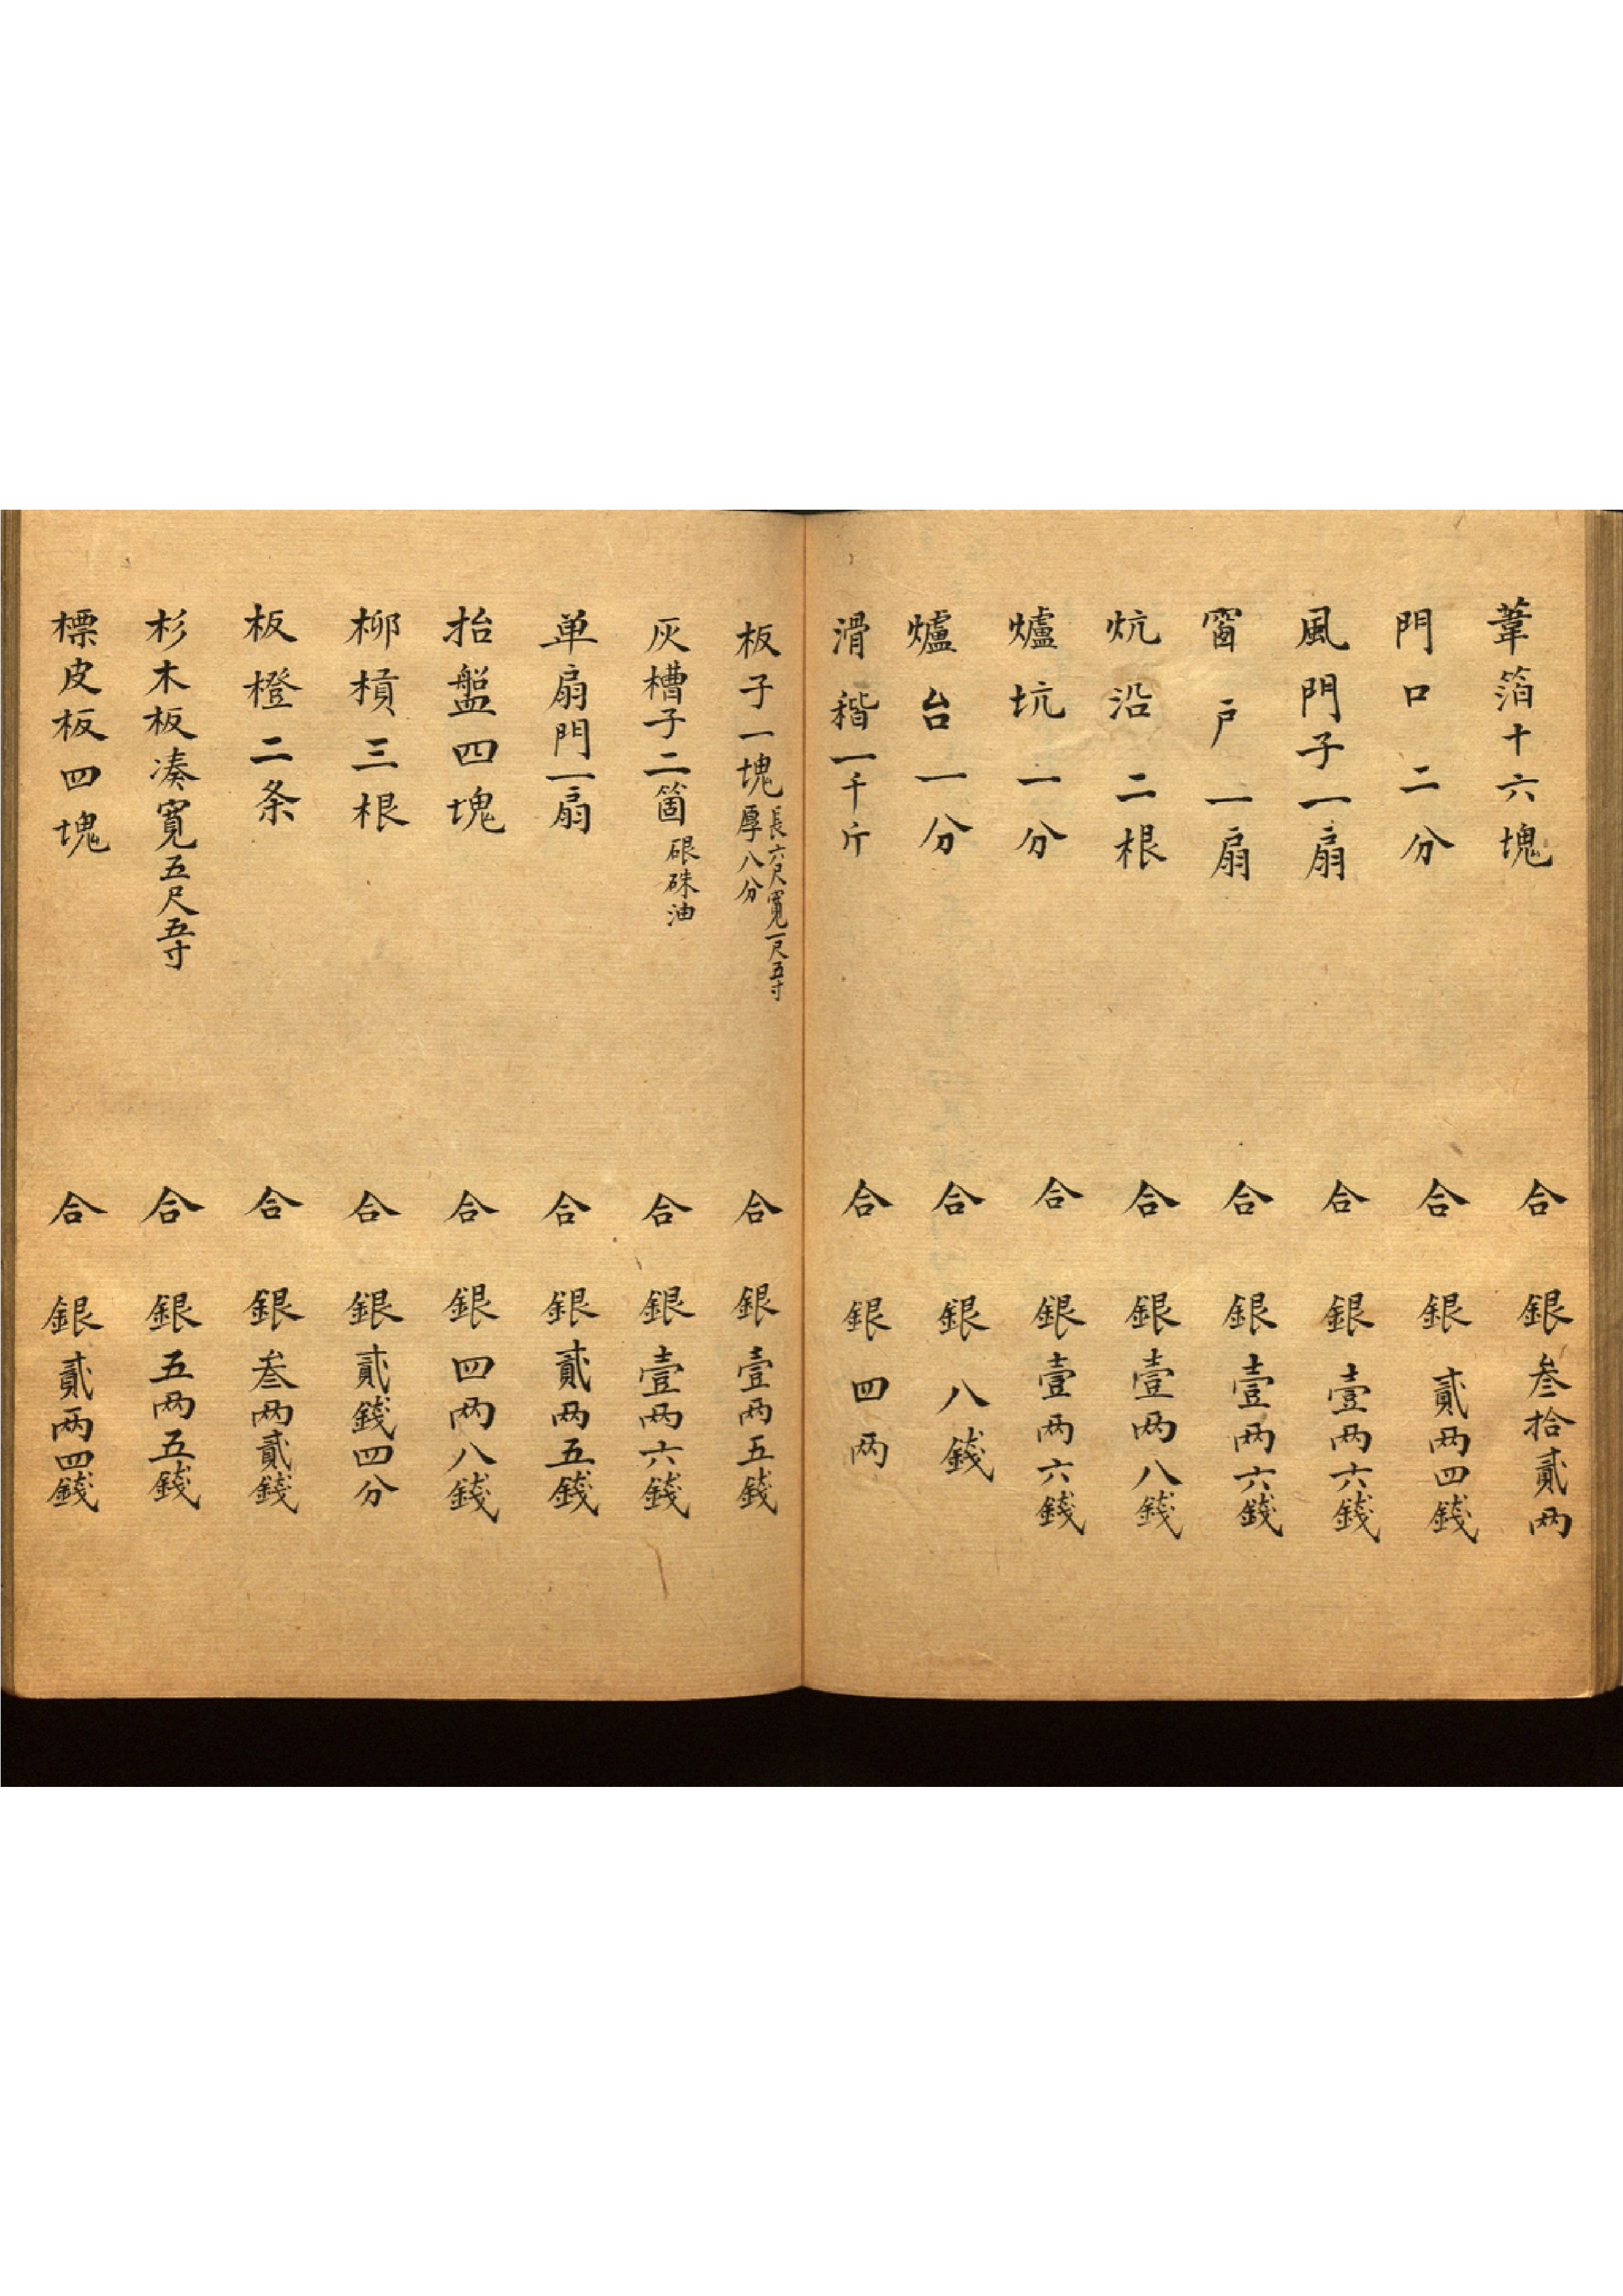 葦箔十六塊 合 銀叁拾貳两
門口二分 合 銀貳两四錢
風門子一扇 合 銀壹两六錢
窗戶一扇 合 銀壹两六錢
炕沿二根 合 銀壹两八錢
爐坑一分 合 銀壹两六錢
爐台一分 合 銀八錢
滑稭一千斤 合 銀四两
板子一塊 長六尺寬一尺五寸厚八分 合 銀壹两五錢
灰槽子二箇 硍硃油 合 銀壹两六錢
单扇門一扇 合 銀貳两五錢
抬盤四塊 合 銀四两八錢
柳槓三根 合 銀貳錢四分
板橙二条 合 銀叁两貳錢
杉木板凑寬五尺五寸 合 銀五两五錢
標皮板四塊 合 銀貳两四錢